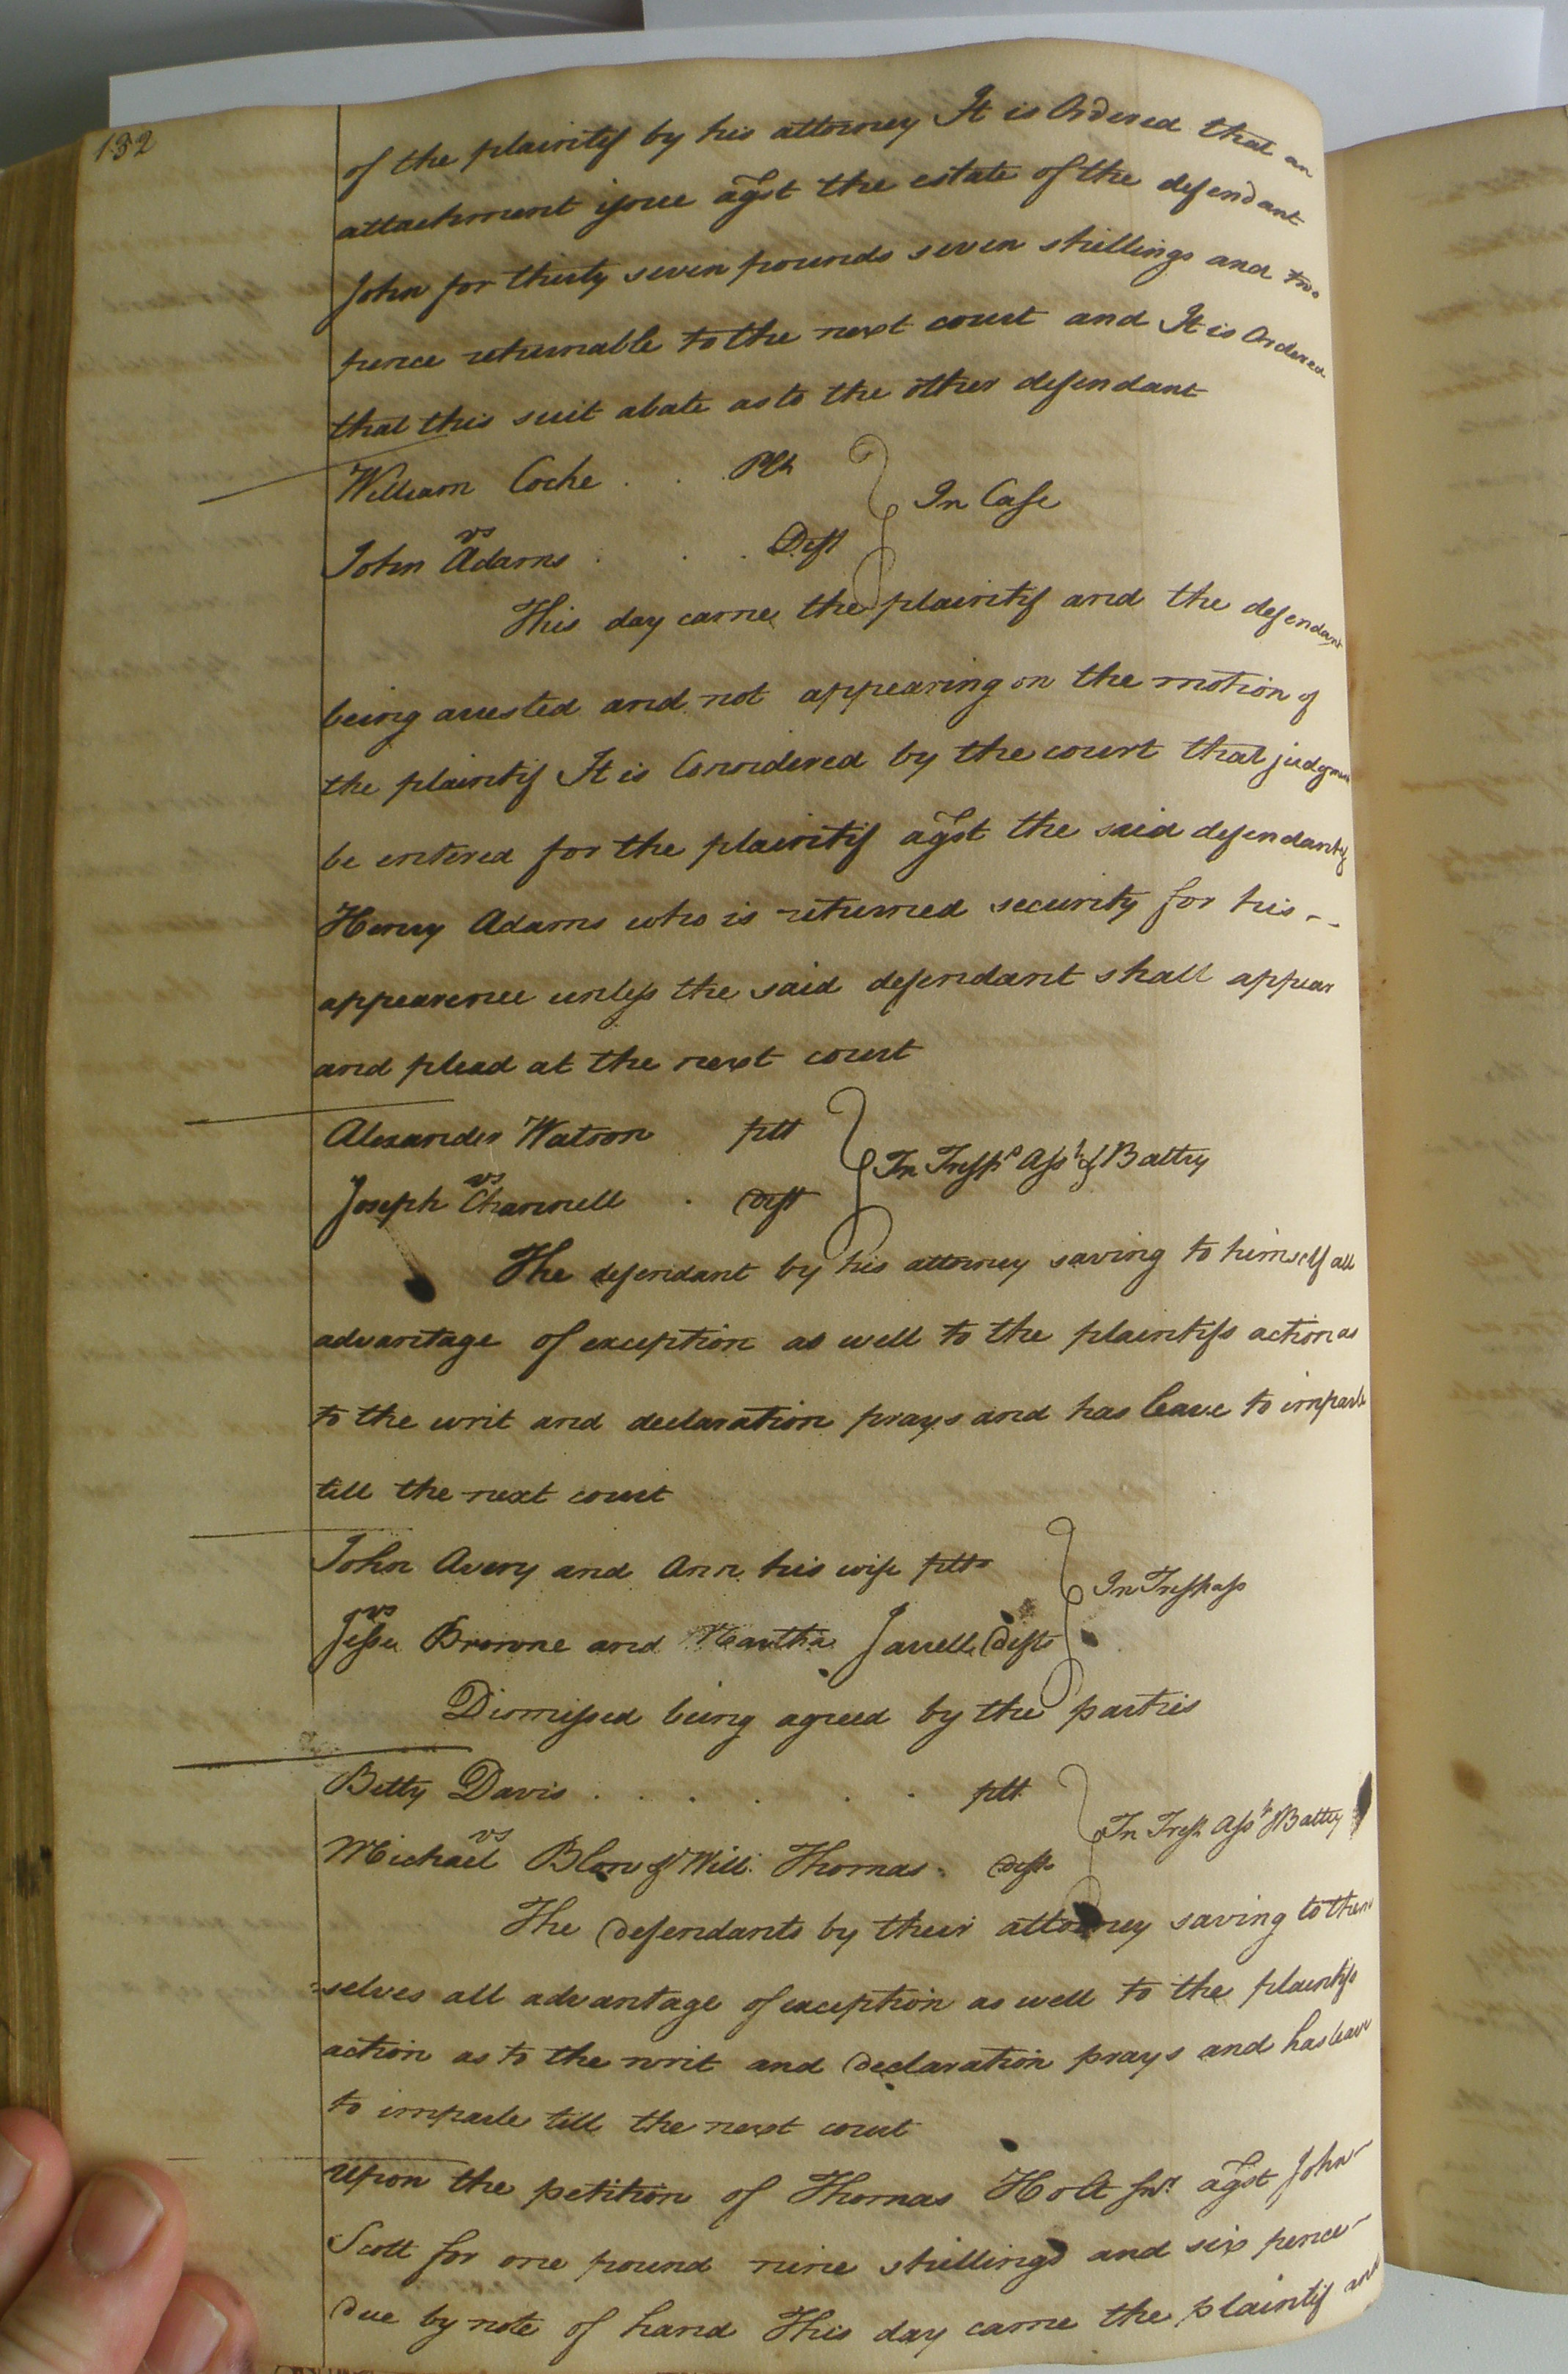 132
of the plaintif by his attorney It is Ordered that an
attachment issue agst the estate of the defendant
John for thirty seven pounds seven shillings and two
pence returnable to the next court and It is Ordered
that this suit abate as to the other defendant
William Cocke . . Plt
vs In Case
John Adams . . . Deft
This day came the plaintif and the defendant
being arrested and not appearing on the motion of
the plaintif It is Considered by the court that judgment
be entered for the plaintif agst the said defendant &
Henry Adams who is returned security for his - -
appearence unless the said defendant shall appear
and plead at the next court
Alexander Watson plt
vs In Tressps Asst & Battry
Joseph Channell . Deft
The defendant by his attorney saving to himself all
advantage of exception as well to the plaintifs action as
to the writ and declaration prays and has leave to imparle
till the next court
John Avery and Ann his wife plts
vs In Tresspass
Jesse Browne and Martha Jarrell Defts
Dismissed being agreed by the parties
Betty Davis . . . . . . plt
vs In Tress Asst & Battry
Michael Blow & Will. Thomas . Defts
The Defendants by their attorney saving to them
=selves all advantage of exception as well to the plaintifs
action as to the writ and Declaration prays and has leave
to imparle till the next court
Upon the petition of Thomas Holt Junr agst John -
Scott for one pound nine shillings and six pence -
Due by note of hand This day came the plaintif and